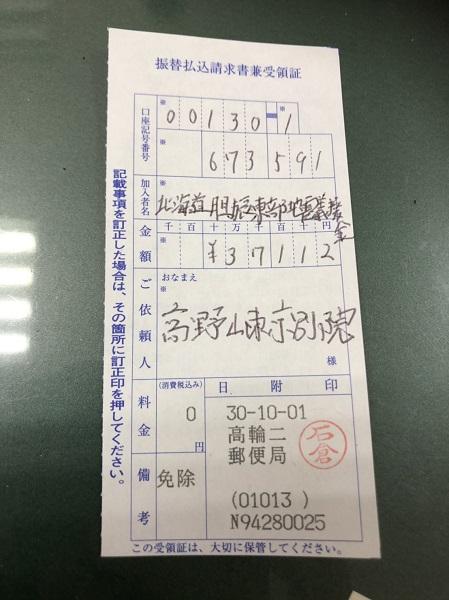 振替払込請求書兼受領証
口座記号番号
※
00130-1
※
※
673591
加入者名
※
北海道胆振東部地震義援金
金額
千百十万千百十円
※
¥37112
ご依頼人
おなまえ
※
高野山東京別院
様
料金
(消費税込み)
0
円
日附印
30-10-01
高輪二
郵便局
(01013 )
N94280025
石倉
備考
免除
記載事項を訂正した場合は、その箇所に訂正印を押してください。
この受領証は、大切に保管してください。